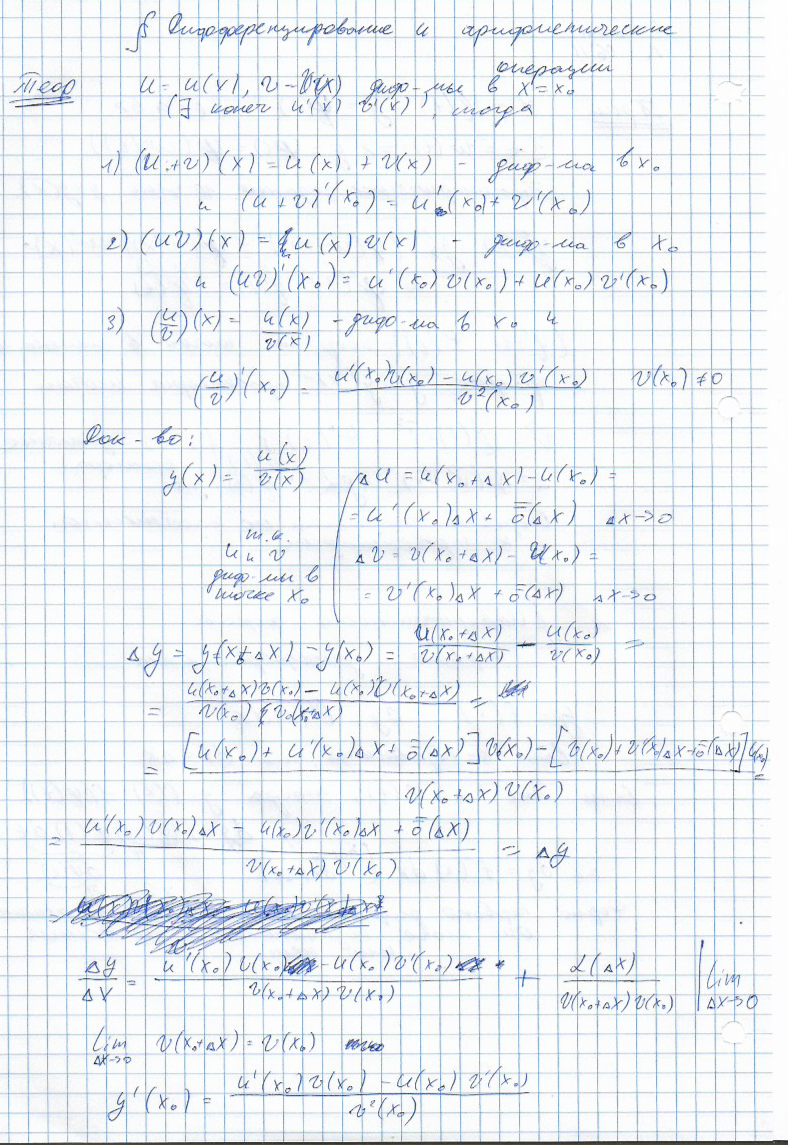 § Дифференцирование и арифметические
операции
Теор u = u(x), v = v(x) диф-мы в x = x₀
(∃ конеч u'(x) v'(x)), тогда
1) (u + v)(x) = u(x) + v(x) - диф-ма в x₀
и (u + v)'(x₀) = u'(x₀) + v'(x₀)
2) (uv)(x) = u(x) v(x) - диф-ма в x₀
и (uv)'(x₀) = u'(x₀) v(x₀) + u(x₀) v'(x₀)
3) (u/v)(x) = u(x)/v(x) - диф-ма в x₀ и
(u/v)'(x₀) = (u'(x₀)v(x₀) - u(x₀) v'(x₀))/v²(x₀) v(x₀) ≠ 0
Док-во:
y(x) = u(x)/v(x)
т.к.
u и v
диф-мы в
точке x₀
Δu = u(x₀+Δx) - u(x₀) =
= u'(x₀)Δx + ō(Δx) Δx→0
Δv = v(x₀+Δx) - v(x₀) =
= v'(x₀)Δx + ō(Δx) Δx→0
Δy = y(x₀+Δx) - y(x₀) = u(x₀+Δx)/v(x₀+Δx) - u(x₀)/v(x₀) =
= (u(x₀+Δx)v(x₀) - u(x₀)v(x₀+Δx))/(v(x₀) v(x₀+Δx)) =
= ([u(x₀) + u'(x₀)Δx + ō(Δx)] v(x₀) - [v(x₀) + v'(x₀)Δx + ō(Δx)] u(x₀))/(v(x₀+Δx) v(x₀)) =
= (u'(x₀) v(x₀)Δx - u(x₀)v'(x₀)Δx + ō(Δx))/(v(x₀+Δx) v(x₀)) = Δy
Δy/Δx = (u'(x₀) v(x₀) - u(x₀) v'(x₀))/(v(x₀+Δx) v(x₀)) + α(Δx)/(v(x₀+Δx) v(x₀)) | lim Δx→0
lim Δx→0 v(x₀+Δx) = v(x₀)
y'(x₀) = (u'(x₀) v(x₀) - u(x₀) v'(x₀))/v²(x₀)